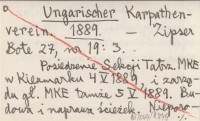 Ungarischer Karpathen-
verein. 1889. — Zipser
Bote 27, nr 19: 3.
Posiedzenie Sekcji Tatrz. MKE
w Kieżmarku 4 V 1889, i zarzą-
du gł. MKE tamże 5 V 1889. Bu-
dowa i naprawa ścieżek. Nieporo-